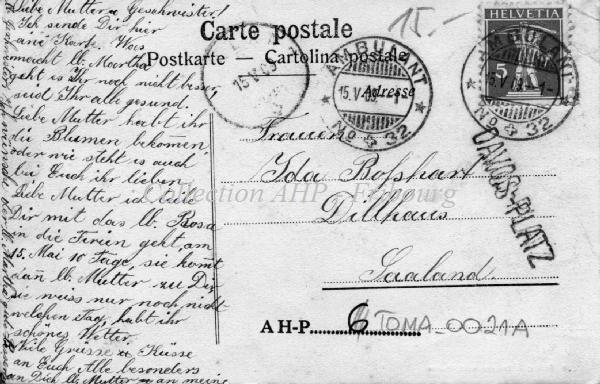 Liebe Mutter u Geschwister!
Ich sende Dir hier
eine Karte. Was
macht lb. Martha
geht es Ihr noch nicht besser
seid Ihr alle gesund.
Liebe Mutter habt ihr
die Blumen bekommen
oder wie steht es auch
bei Euch ihr lieben
Liebe Mutter ich teile
Dir mit das lb. Rosa
in die Ferien geht, am
15. Mai 10 Tage, sie kommt
dan lb. Mutter zu Dir
sie muss nur noch nicht
welchen Tag, habt ihr
schönes Wetter.
Viele Grüsse u Küsse
an Euch Alle besonders
an Dich lb. Mutter u an meine
Carte postale
Postkarte – Cartolina postale
15.-
HELVETIA
5
15.V.09
AMBULANT
15.V.09.-1
No 4 32
AMBULANT
15.V.09.-1
No 4 32
DAVOS-PLATZ
Adresse
Frauen
Ida Boßhart
Dillhaus
Saaland.
Collection AHP - Fribourg
AH-P. 6 TOMA 0021A